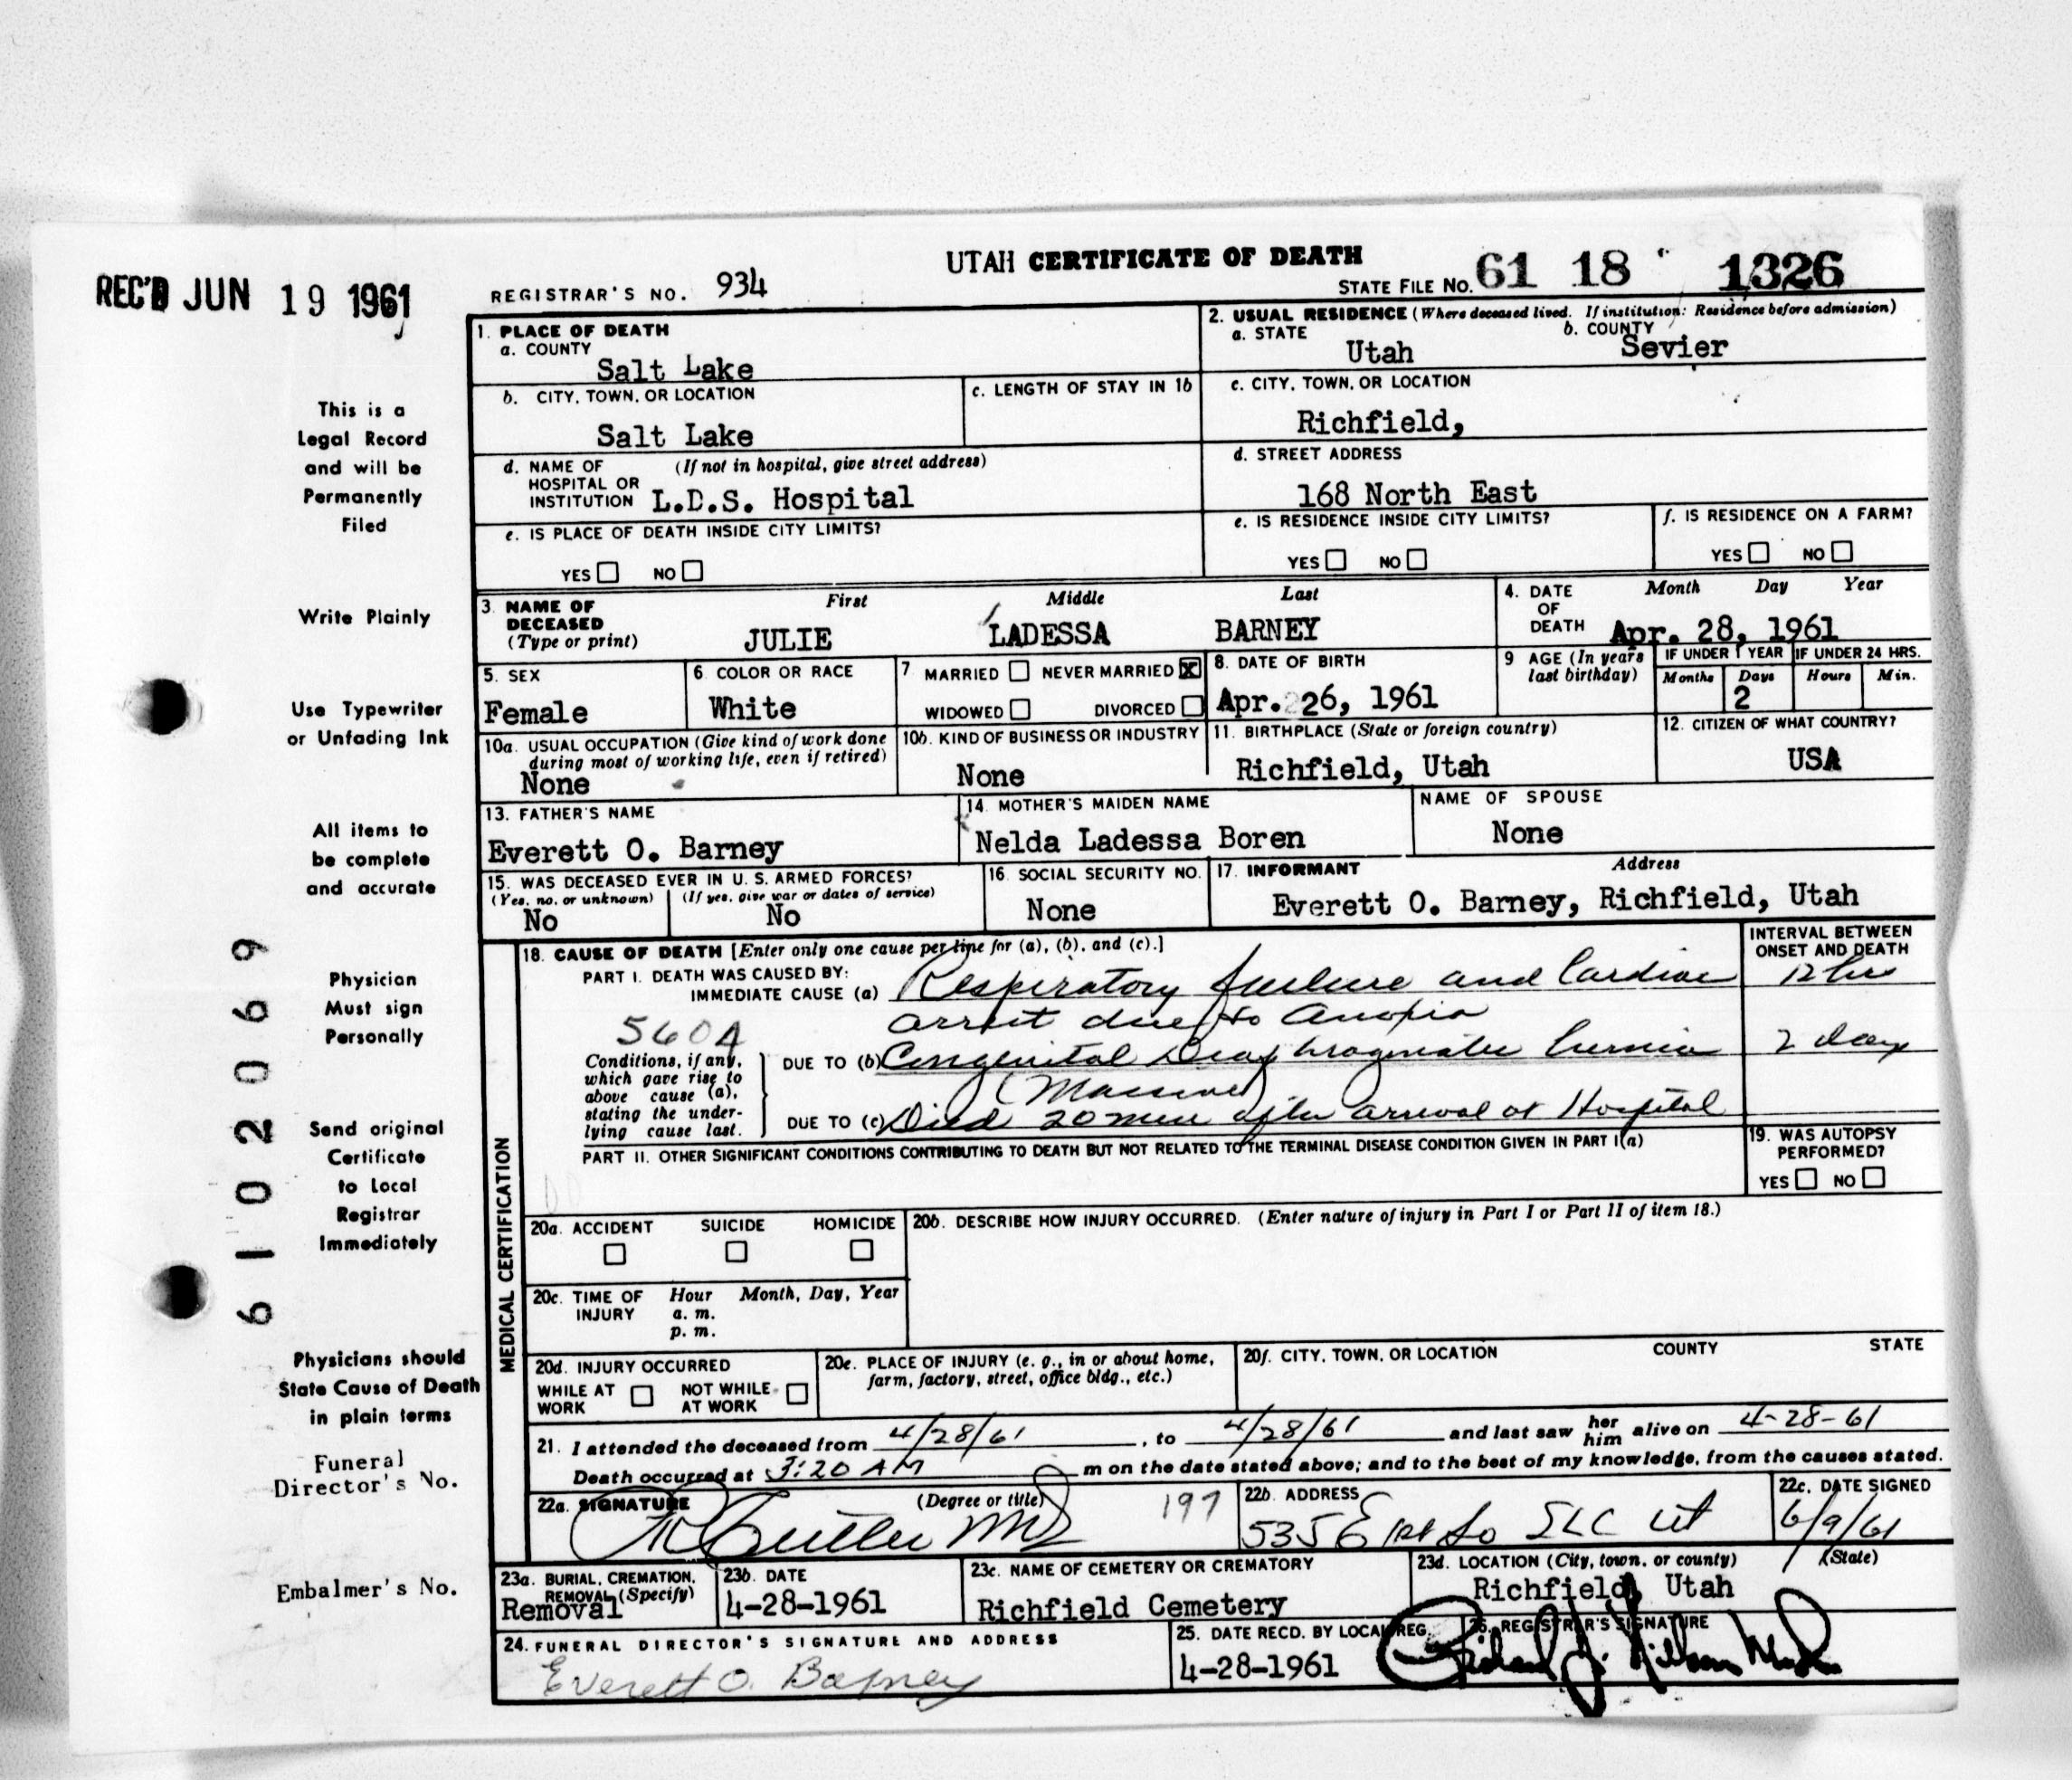 UTAH CERTIFICATE OF DEATH
REC'D JUN 19 1961
REGISTRAR'S NO. 934
STATE FILE NO. 61 18 1326
1. PLACE OF DEATH
a. COUNTY
Salt Lake
2. USUAL RESIDENCE (Where deceased lived. If institution: Residence before admission)
a. STATE
Utah
b. COUNTY
Sevier
b. CITY, TOWN, OR LOCATION
Salt Lake
c. LENGTH OF STAY IN 1b
c. CITY, TOWN, OR LOCATION
Richfield,
d. NAME OF HOSPITAL OR INSTITUTION
(If not in hospital, give street address)
L.D.S. Hospital
d. STREET ADDRESS
168 North East
e. IS PLACE OF DEATH INSIDE CITY LIMITS?
YES NO
e. IS RESIDENCE INSIDE CITY LIMITS?
YES NO
f. IS RESIDENCE ON A FARM?
YES NO
3. NAME OF DECEASED
(Type or print)
First Middle Last
JULIE LADESSA BARNEY
4. DATE OF DEATH
Month Day Year
Apr. 28, 1961
5. SEX
Female
6. COLOR OR RACE
White
7. MARRIED NEVER MARRIED X
WIDOWED DIVORCED
8. DATE OF BIRTH
Apr. 26, 1961
9 AGE (In years last birthday)
IF UNDER 1 YEAR
Months Days
2
IF UNDER 24 HRS.
Hours Min.
10a. USUAL OCCUPATION (Give kind of work done during most of working life, even if retired)
None
10b. KIND OF BUSINESS OR INDUSTRY
None
11. BIRTHPLACE (State or foreign country)
Richfield, Utah
12. CITIZEN OF WHAT COUNTRY?
USA
13. FATHER'S NAME
Everett O. Barney
14. MOTHER'S MAIDEN NAME
Nelda Ladessa Boren
NAME OF SPOUSE
None
15. WAS DECEASED EVER IN U. S. ARMED FORCES?
(Yes, no, or unknown) (If yes, give war or dates of service)
No No
16. SOCIAL SECURITY NO.
None
17. INFORMANT Address
Everett O. Barney, Richfield, Utah
MEDICAL CERTIFICATION
18. CAUSE OF DEATH [Enter only one cause per line for (a), (b), and (c).]
INTERVAL BETWEEN ONSET AND DEATH
PART I. DEATH WAS CAUSED BY:
IMMEDIATE CAUSE (a) Respiratory failure and Cardiac 12 hrs
arrest due to Anoxia
560A
Conditions, if any, which gave rise to above cause (a), stating the underlying cause last.
DUE TO (b) Congenital Diaphragmatic hernia 2 days
(Massive)
DUE TO (c) Died 20 min after arrival at Hospital
PART II. OTHER SIGNIFICANT CONDITIONS CONTRIBUTING TO DEATH BUT NOT RELATED TO THE TERMINAL DISEASE CONDITION GIVEN IN PART I(a)
19. WAS AUTOPSY PERFORMED?
YES NO
20a. ACCIDENT SUICIDE HOMICIDE
20b. DESCRIBE HOW INJURY OCCURRED. (Enter nature of injury in Part I or Part II of item 18.)
20c. TIME OF INJURY
Hour Month, Day, Year
a. m.
p. m.
20d. INJURY OCCURRED
WHILE AT WORK NOT WHILE AT WORK
20e. PLACE OF INJURY (e. g., in or about home, farm, factory, street, office bldg., etc.)
20f. CITY, TOWN, OR LOCATION COUNTY STATE
21. I attended the deceased from 4/28/61, to 4/28/61 and last saw her him alive on 4-28-61
Death occurred at 3:20 AM m on the date stated above; and to the best of my knowledge, from the causes stated.
22a. SIGNATURE (Degree or title)
Cutler MD
197
22b. ADDRESS
535 E 1st So SLC Ut
22c. DATE SIGNED
6/9/61
23a. BURIAL, CREMATION, REMOVAL (Specify)
Removal
23b. DATE
4-28-1961
23c. NAME OF CEMETERY OR CREMATORY
Richfield Cemetery
23d. LOCATION (City, town, or county) (State)
Richfield, Utah
24. FUNERAL DIRECTOR'S SIGNATURE AND ADDRESS
Everett O. Barney
25. DATE RECD. BY LOCAL REG.
4-28-1961
26. REGISTRAR'S SIGNATURE
This is a
Legal Record
and will be
Permanently
Filed
Write Plainly
Use Typewriter
or Unfading Ink
All items to
be complete
and accurate
Physician
Must sign
Personally
Send original
Certificate
to Local
Registrar
Immediately
Physicians should
State Cause of Death
in plain terms
Funeral
Director's No.
Embalmer's No.
6102069